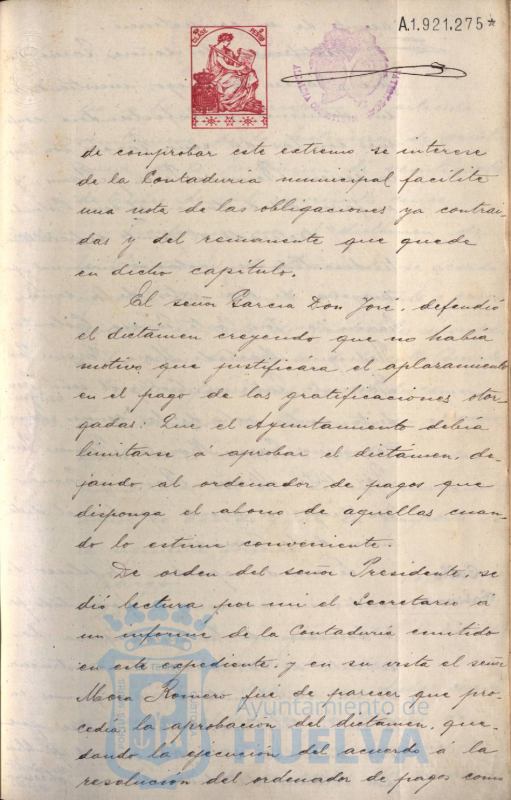 A.1.921.275*
de comprobar este extremo se interese
de la Contaduria municipal facilite
una nota de las obligaciones ya contrai-
das y del remanente que quede
en dicho capítulo.
El señor Garcia Don José, defendió
el dictámen creyendo que no había
motivo que justificára el aplazamiento
en el pago de las gratificaciones otor-
gadas: Que el Ayuntamiento debía
limitarse á aprobar el dictámen, de-
jando al ordenador de pagos que
disponga el abono de aquellas cuan-
do lo estime conveniente.
De orden del señor Presidente, se
dió lectura por mi el Secretario á
un informe de la Contaduría emitido
en este expediente, y en su vista el señor
Mora Romero fué de parecer que pro-
cedia la aprobacion del dictámen, que-
dando la ejecución del acuerdo á la
resolución del ordenador de pagos como
Ayuntamiento de
HUELVA